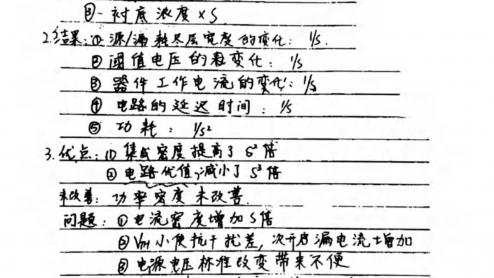 ③-衬底浓度×S
2.结果:①源/漏耗尽层宽度的变化:1/S.
②阈值电压的数变化:1/S
③器件工作电流的变化:1/S
④电路的延迟时间:1/S
⑤功耗:1/S²
3.优点:①集成密度提高了S²倍
②电路优值减小了S³倍
未改善:功率密度未改善.
问题:①电流密度增加S倍
②VTH小使抗干扰差,次开启漏电流增加
③电源电压标准改变带来不便